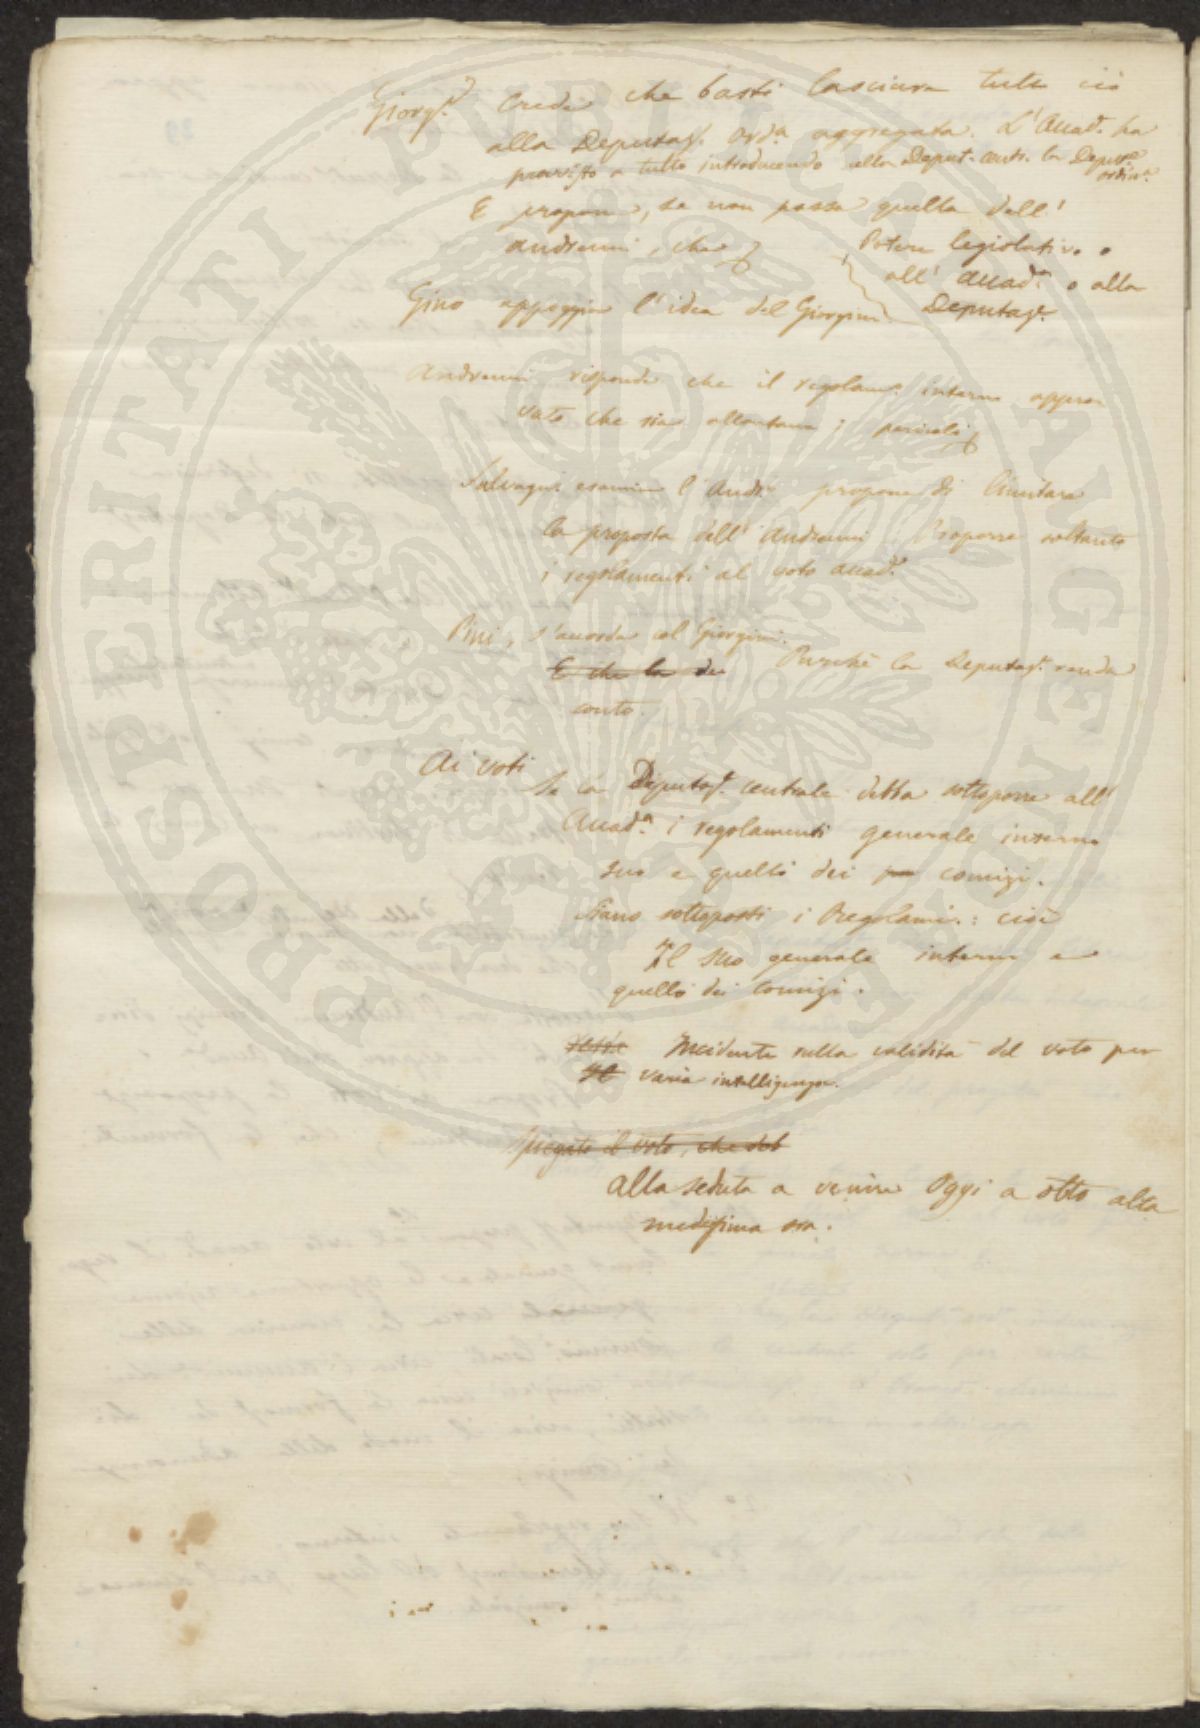 Giorg.i Crede che basti lasciare tutto ciò
alla Deputaz.e Ord.a aggregata. L'Accad.a ha
provvisto a tutto introducendo alla Deput.e centr. la Deput.ne
ordin.a
E propone, se non passa quella dell'
Andreucci, che
Potere legislativo o
all' Accad.a o alla
Deputaz.e
Gino appoggia l'idea del Giorgini
Andreucci risponde che il regolam.o interno appro-
vato che sia allontana i pericoli
Salvagni esamina l'Andr.i propone di limitare
la proposta dell' Andreucci. Proporre soltanto
i regolamenti al voto Accad.o
Pini, s'accorda col Giorgini.
E che la de Purchè la Deputaz.e renda
conto.
Ai voti
Se la Deputaz.e centrale debba sottoporre all'
Accad.a i regolamenti generale interno
suo e quelli dei comizi.
Siano sottoposti i Regolami.: cioè
Il suo generale interno e
quello dei Comizi.
Incidente sulla validità del voto per
Il varia intelligenza.
Spiegato il voto, che deb
Alla seduta a venire Oggi a otto alla
medesima ora.
PROSPERITATI PUBLICAE AUGENDAE